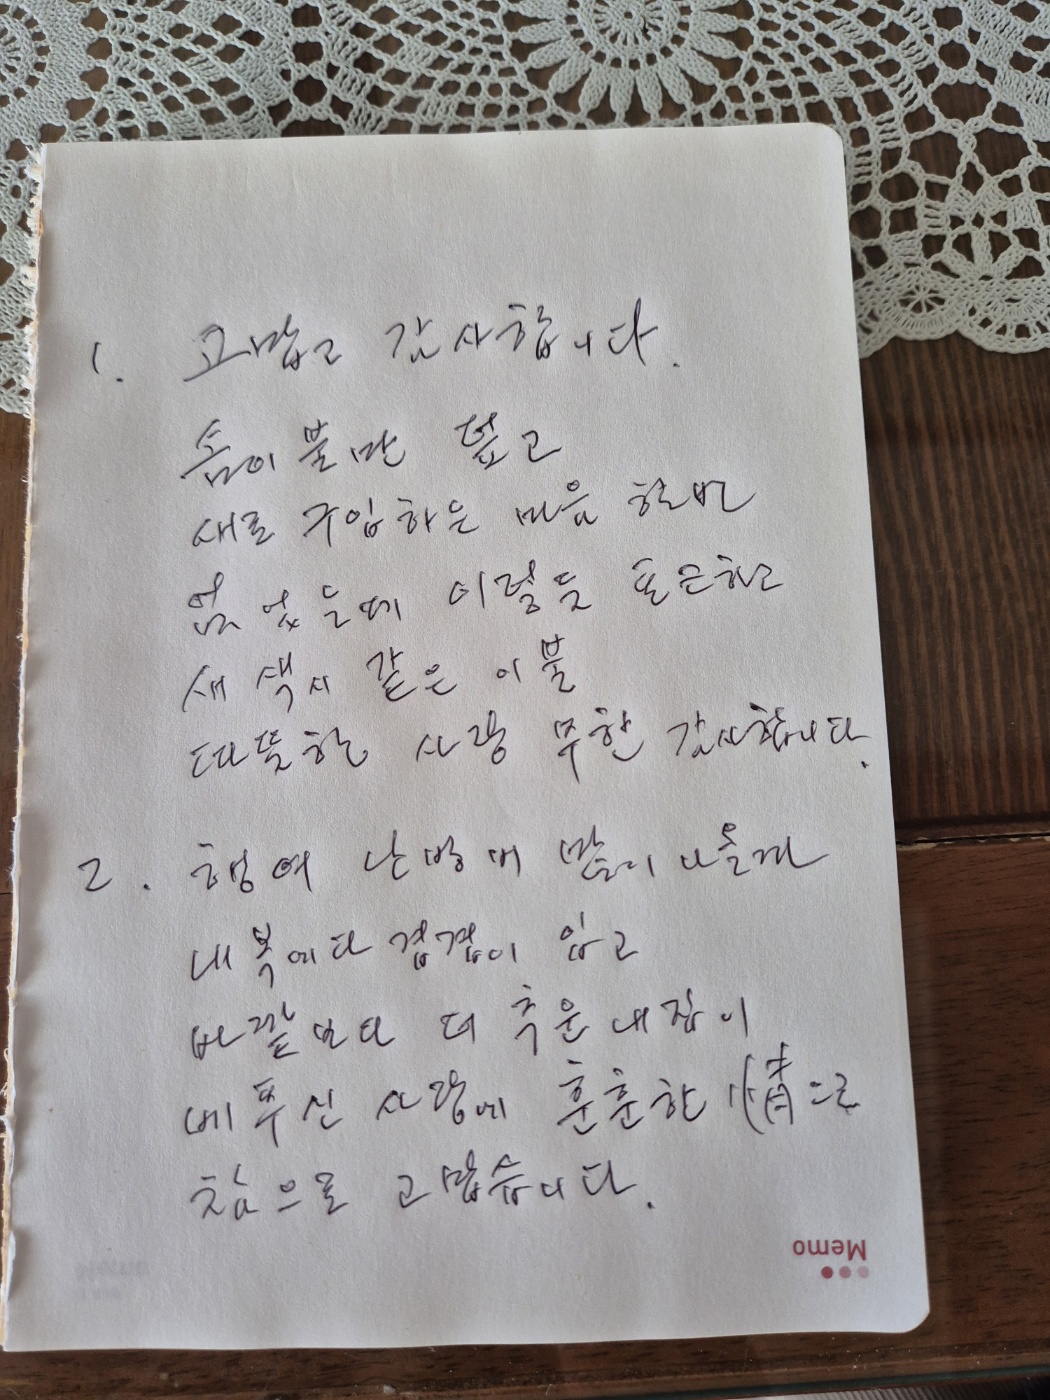 1. 고맙고 감사합니다.
솜이불만 덮고
새로 구입하는 마음 한번
없었는데 이렇듯 포근하고
새색시 같은 이불
따뜻한 사랑 무한 감사합니다.
2. 행여 난방비 많이 나올까
내복에다 겹겹이 입고
바깥보다 더 추운 내집이
베푸신 사랑에 훈훈한 情으로
참으로 고맙습니다.
Memo